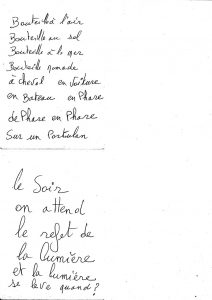 Bouteille à l'air
Bouteille au sol
Bouteille à la mer
Bouteille nomade
à cheval en voiture
en Bateau en Phase
de Phase en Phase
Sur un Portulan
le Soir
on attend
le reflet de
la lumière
et la lumière
se lève quand ?